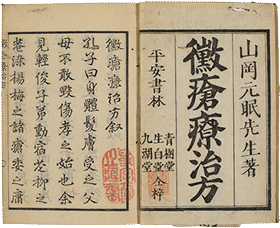 山岡元眠先生著
黴瘡療治方
平安書林
青樹堂
生白堂
九湖堂
仝梓
黴瘡療治方叙
孔子曰身體髮膚受之父
母不敢毀傷孝之始也余
見輕俊子弟動宿花柳之
巷染楊梅之諸瘡委之庸